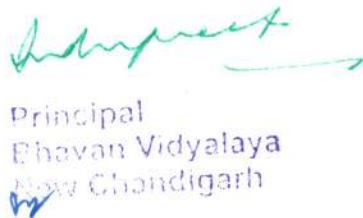 Principal
Bhavan Vidyalaya
New Chandigarh